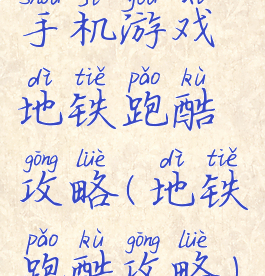 shǒu jī yóu xì
手机游戏
dì tiě pǎo kù
地铁跑酷
gōng lüè dì tiě
攻略(地铁
pǎo kù gōng lüè
跑酷攻略)